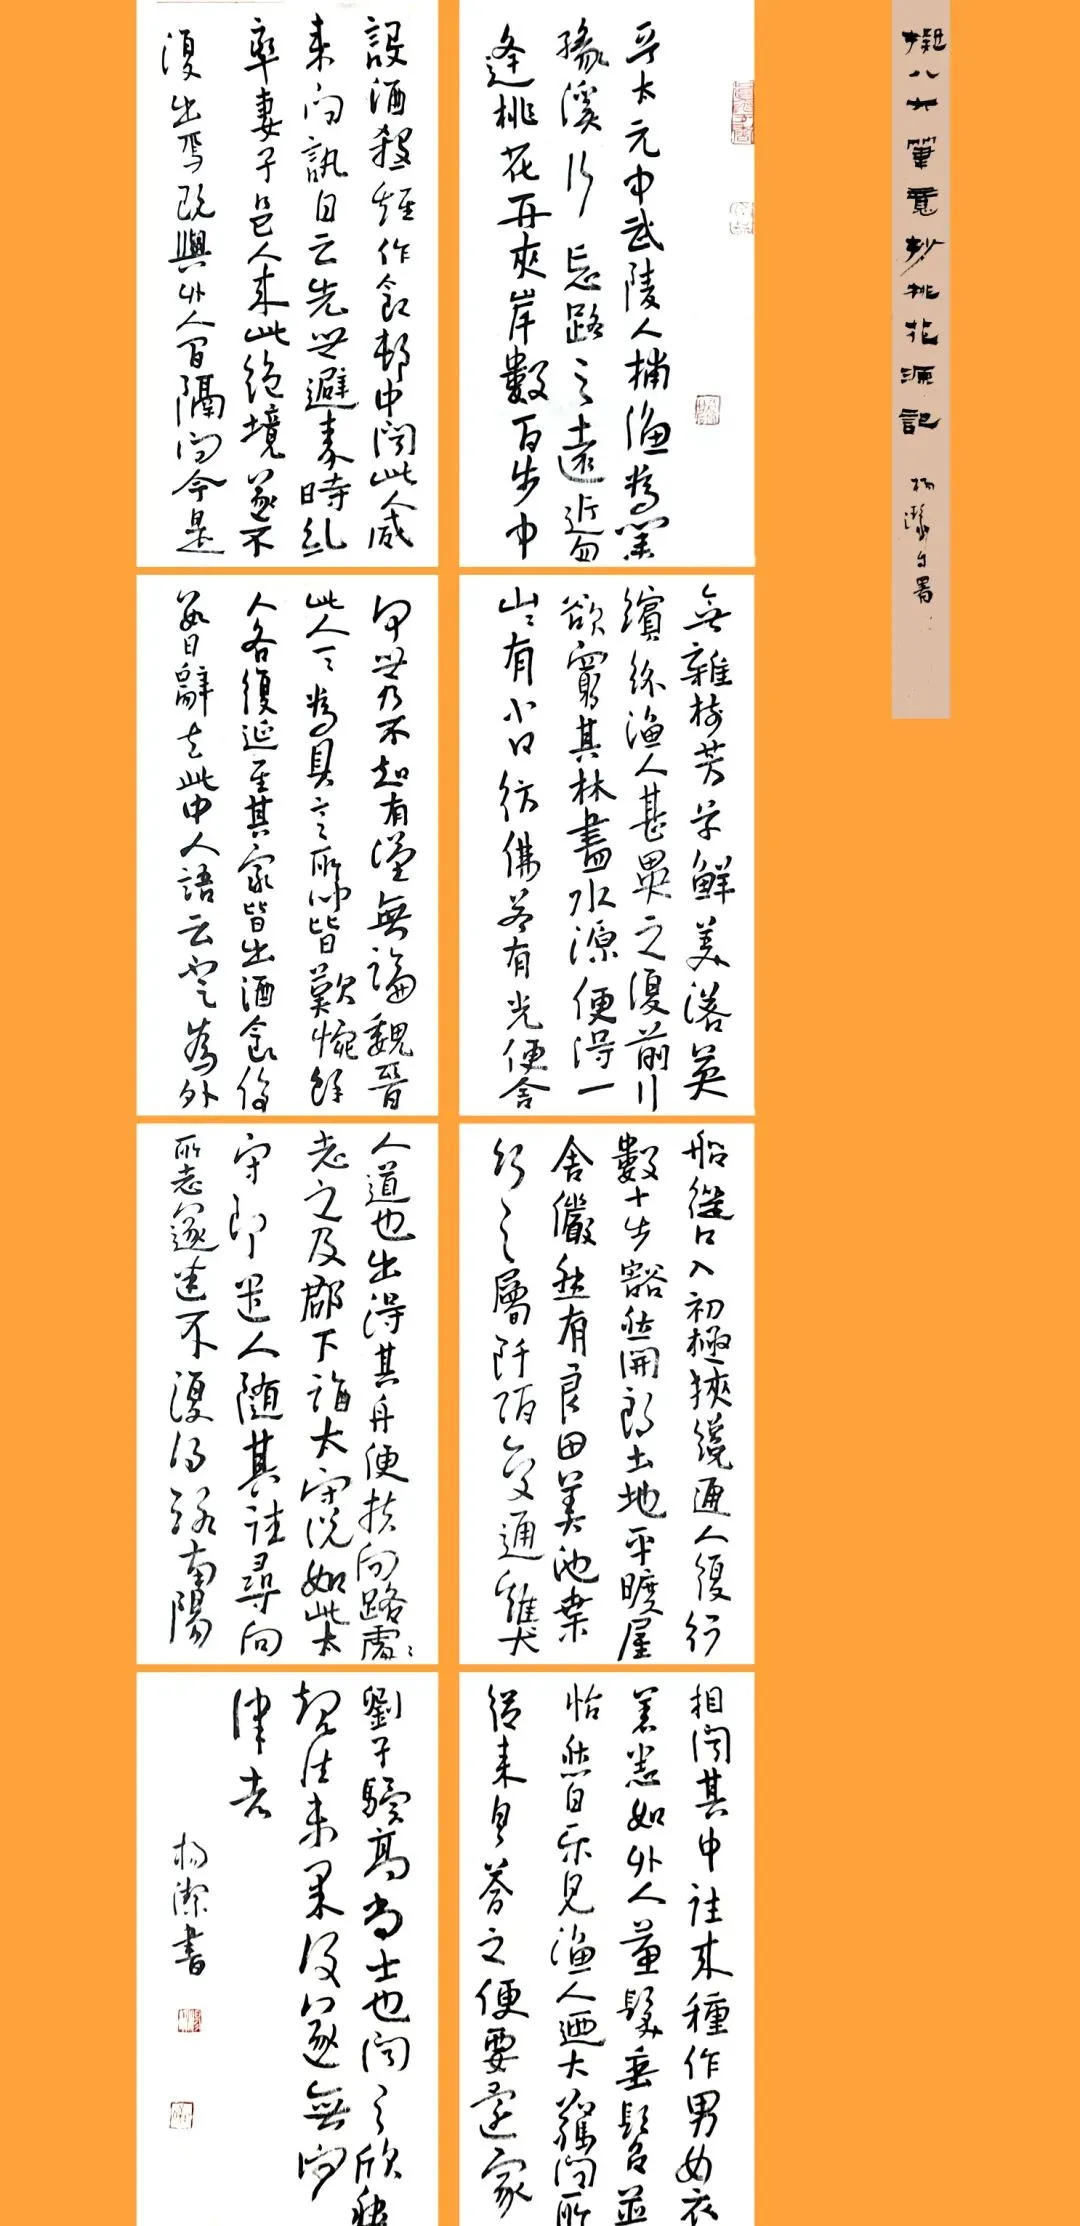 擬八大筆意抄桃花源記 楊潔自署
晉太元中武陵人捕漁為業
緣溪行忘路之遠近忽
逢桃花林夾岸數百步中
無雜樹芳草鮮美落英
繽紛漁人甚異之復前行
欲窮其林盡水源便得一
山山有小口彷彿若有光便舍
船從口入初極狹纔通人復行
數十步豁然開朗土地平曠屋
舍儼然有良田美池桑
竹之屬阡陌交通雞犬
相聞其中往來種作男女衣
著悉如外人黃髮垂髫並
怡然自樂見漁人迺大驚問所
從來具答之便要還家
設酒殺雞作食邨中聞此人咸
來問訊自云先世避秦時亂
率妻子邑人來此絕境遂不
復出焉既與外人間隔問今是
何世乃不知有漢無論魏晉
此人一一為具言所聞皆歎惋餘
人各復延至其家皆出酒食停
數日辭去此中人語云不足為外
人道也出得其舟便扶向路處處
志之及郡下詣太守說如此太
守即遣人隨其往尋向
所志遂迷不復得路南陽
劉子驥高尚士也聞之欣然
規往未果後遂無問
津者
楊潔書